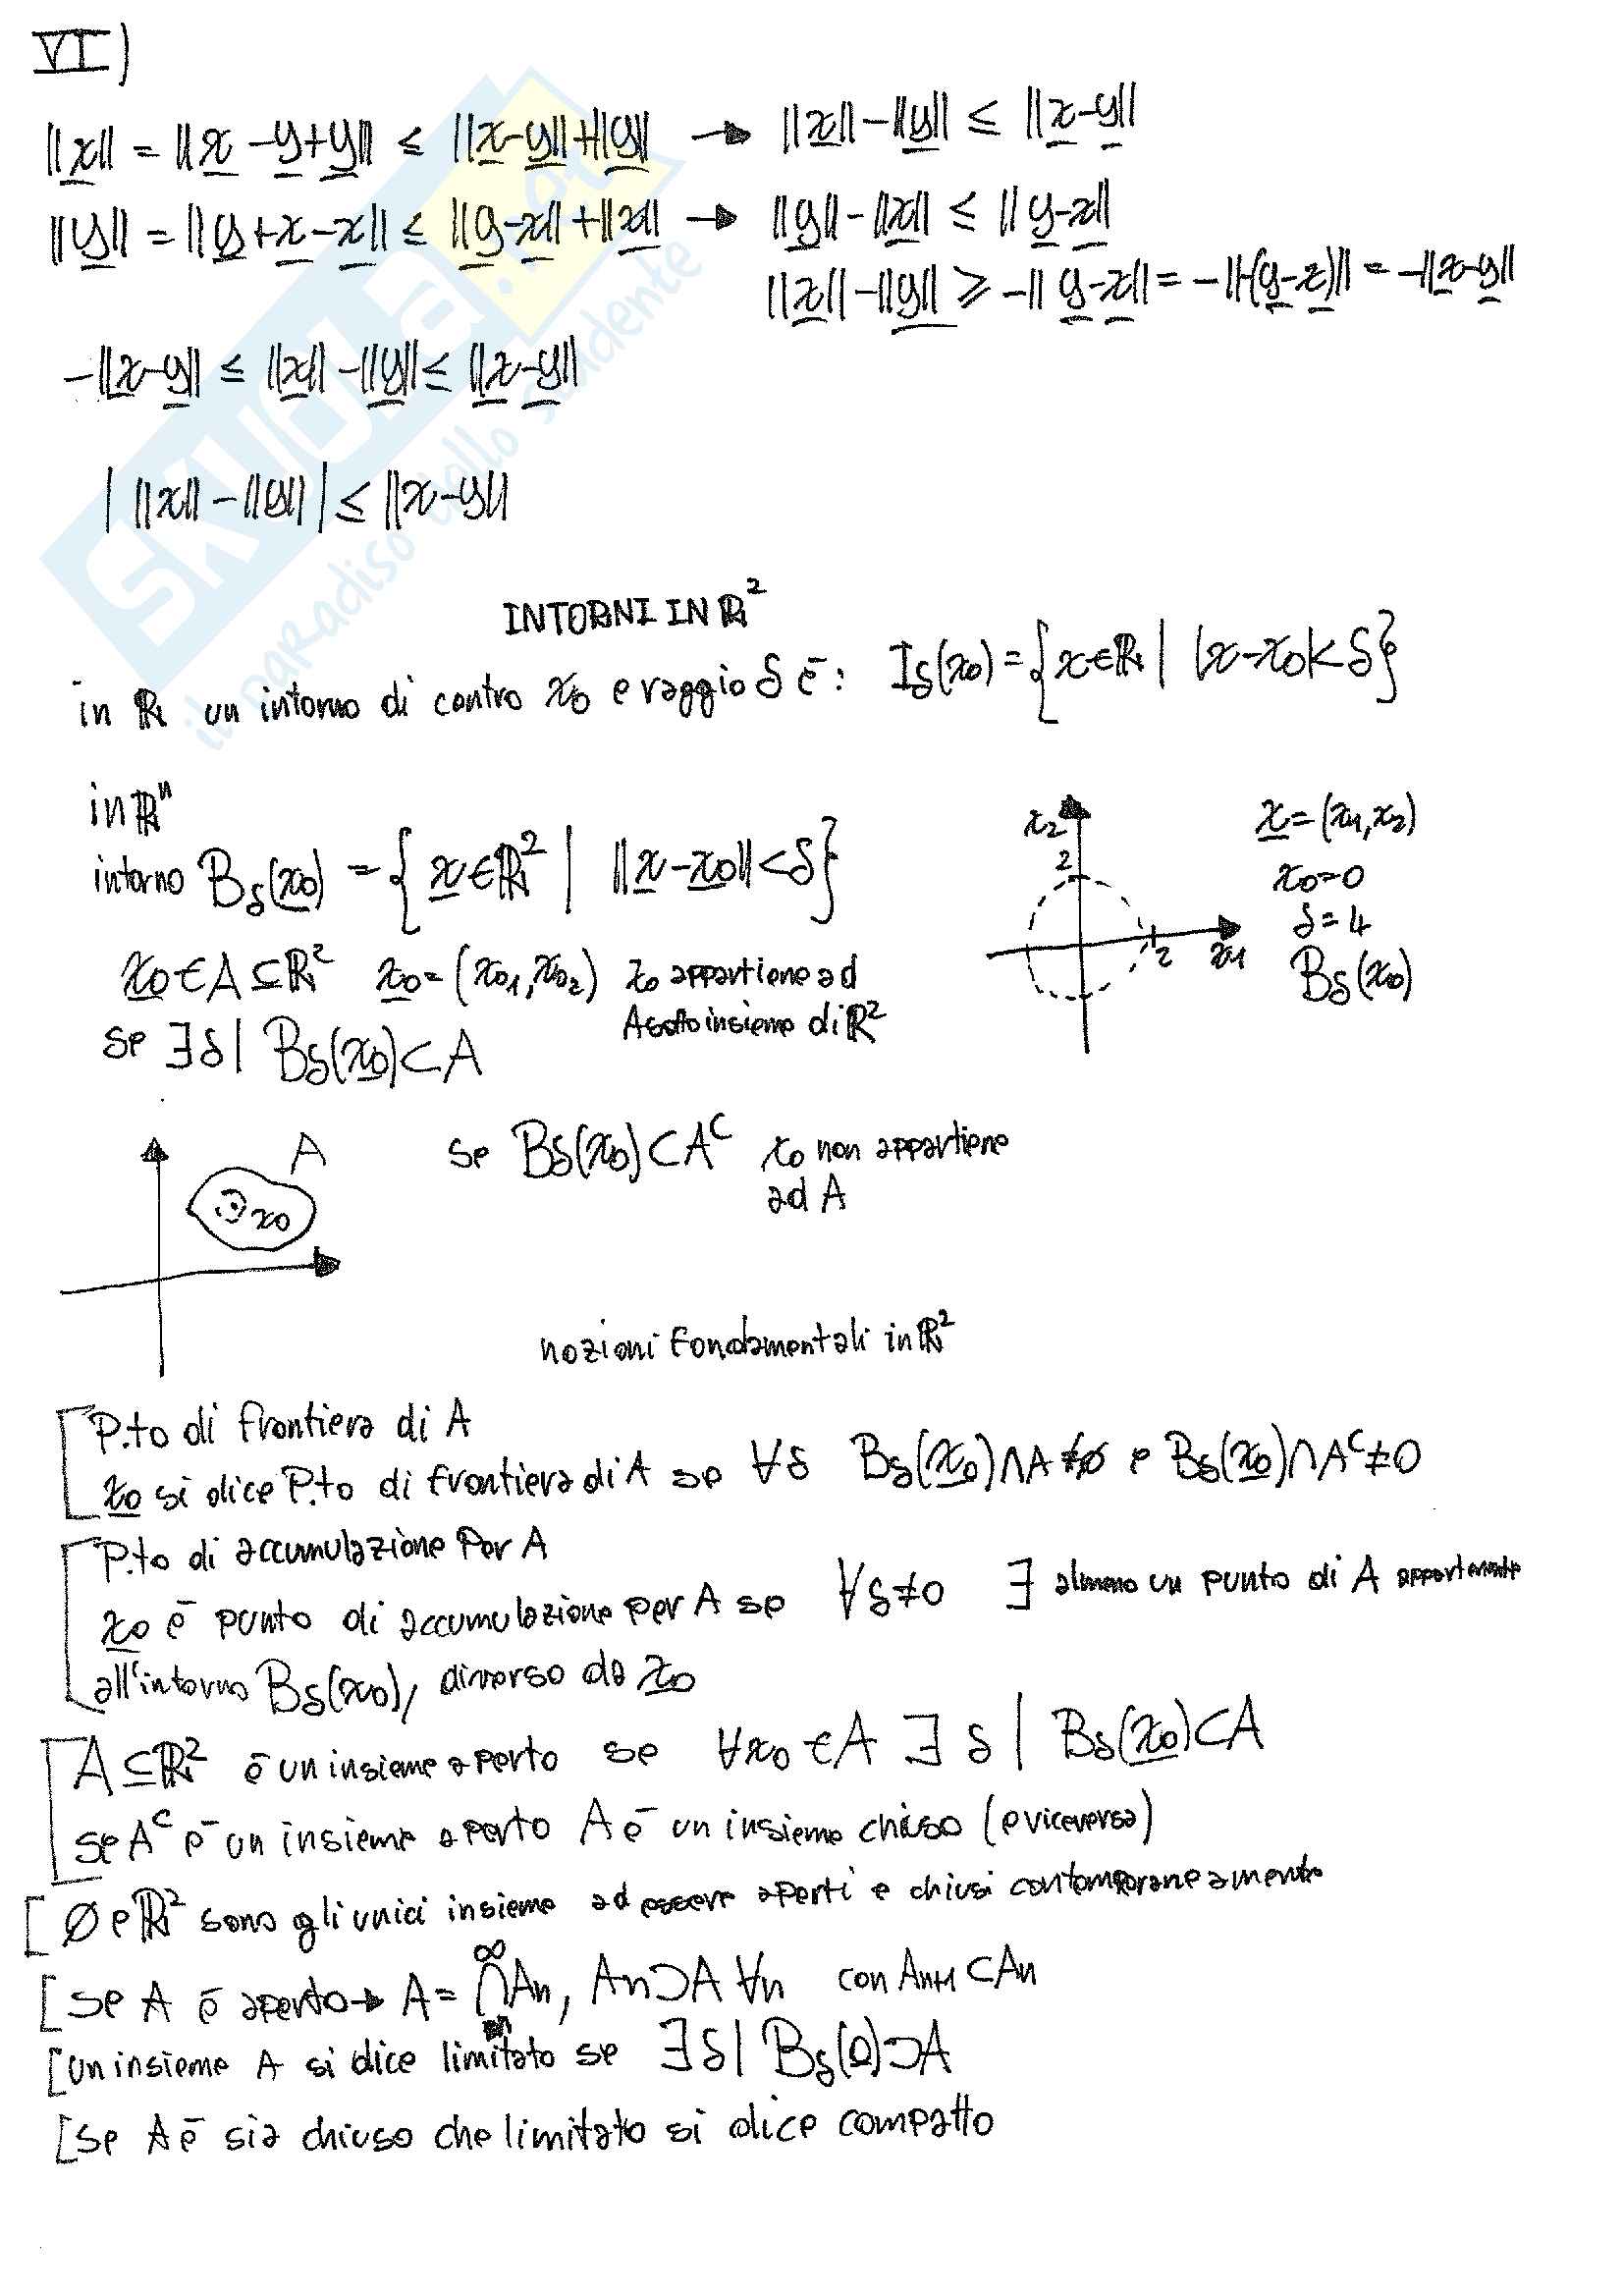 VI)
||x|| = ||x - y + y|| ≤ ||x-y|| + ||y|| → ||x|| - ||y|| ≤ ||x-y||
||y|| = ||y + x - x|| ≤ ||y-x|| + ||x|| → ||y|| - ||x|| ≤ ||y-x||
||x|| - ||y|| ≥ -||y-x|| = -||-(y-x)|| = -||x-y||
-||x-y|| ≤ ||x|| - ||y|| ≤ ||x-y||
| ||x|| - ||y|| | ≤ ||x-y||
INTORNI IN ℝ²
in ℝ un intorno di centro x₀ e raggio δ è: I_δ(x₀) = {x∈ℝ | |x-x₀| < δ}
in ℝⁿ
intorno B_δ(x₀) = {x∈ℝ² | ||x-x₀|| < δ}
x₂
2
2
x₁
x = (x₁, x₂)
x₀=0
δ=4
B_δ(x₀)
x₀∈A⊆ℝ² x₀ = (x₀₁, x₀₂) x₀ appartiene ad
A sottoinsieme di ℝ²
se ∃δ | B_δ(x₀)⊂A
A
x₀
se B_δ(x₀)⊂Aᶜ x₀ non appartiene
ad A
nozioni fondamentali in ℝ²
P.to di frontiera di A
x₀ si dice P.to di frontiera di A se ∀δ B_δ(x₀)∩A≠∅ e B_δ(x₀)∩Aᶜ≠0
P.to di accumulazione per A
x₀ è punto di accumulazione per A se ∀δ≠0 ∃ almeno un punto di A appartenente
all'intorno B_δ(x₀), diverso da x₀
A⊆ℝ² è un insieme aperto se ∀x₀∈A ∃ δ | B_δ(x₀)⊂A
se Aᶜ è un insieme aperto A è un insieme chiuso (e viceversa)
∅ e ℝ² sono gli unici insieme ad essere aperti e chiusi contemporaneamente
se A è aperto → A = ∞⋂n An, An⊃A ∀n con An+1⊂An
un insieme A si dice limitato se ∃δ | B_δ(0)⊃A
se A è sia chiuso che limitato si dice compatto
SKUOLA.net
il paradiso dello studente